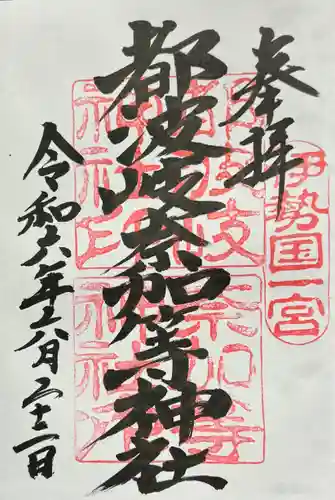 奉拝
伊勢国一宮
都波岐奈加等神社
都波岐
神社印
奈加等
神社印
令和六年六月二十二日